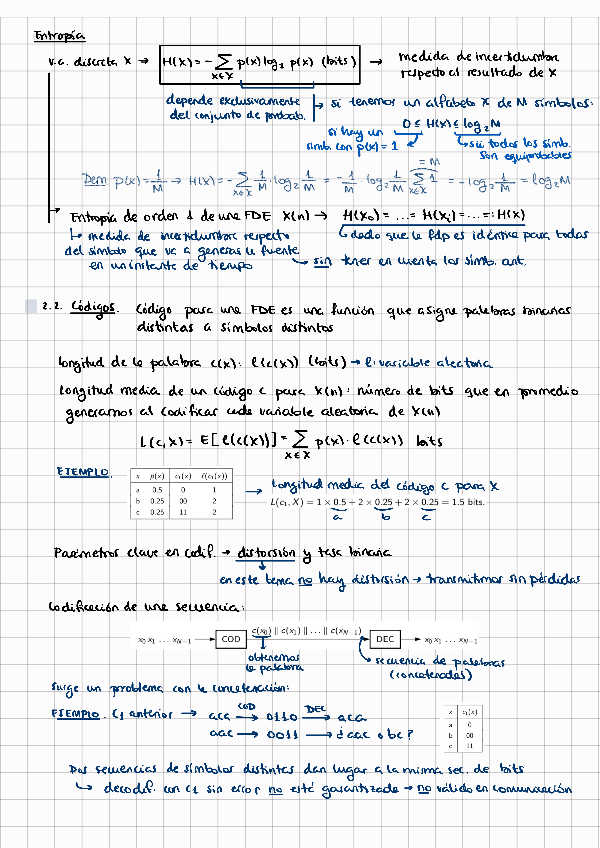 Entropía
v.a. discreta X → H(X) = - Σ p(x) log₂ p(x) (bits) → medida de incertidumbre
x∈X respecto al resultado de X
depende exclusivamente
del conjunto de probab.
si tenemos un alfabeto X de M símbolos:
0 ≤ H(X) ≤ log₂ M
si hay un
símb. con p(x) = 1
sii todos los símb.
son equiprobables
Dem p(x) = 1/M → H(X) = - Σ 1/M · log₂ 1/M = - 1/M · log₂ 1/M Σ 1 = - log₂ 1/M = log₂ M
x∈X x∈X = M
Entropía de orden 1 de una FDE X(n) → H(X₀) = ... = H(Xᵢ) = ... =: H(X)
↳ medida de incertidumbre respecto
del símbolo que va a generar la fuente
en un instante de tiempo
↳ dado que la fdp es idéntica para todas
↳ sin tener en cuenta los símb. ant.
2.2. Códigos. Código para una FDE es una función que asigna palabras binarias
distintas a símbolos distintos
Longitud de la palabra c(x): ℓ(c(x)) (bits) → ℓ: variable aleatoria
Longitud media de un código c para X(n): número de bits que en promedio
generamos al codificar cada variable aleatoria de X(n)
L(c,X) = E[ℓ(c(X))] = Σ p(x) · ℓ(c(x)) bits
x∈X
EJEMPLO.
x p(x) c₁(x) ℓ(c₁(x))
a 0.5 0 1
b 0.25 00 2
c 0.25 11 2
→ Longitud media del código c para X
L(c₁, X) = 1 × 0.5 + 2 × 0.25 + 2 × 0.25 = 1.5 bits.
a b c
Parámetros clave en codif. → distorsión y tasa binaria
en este tema no hay distorsión → transmitimos sin pérdidas
Codificación de una secuencia:
x₀ x₁ ... x_{N-1} → COD c(x₀) || c(x₁) || ... || c(x_{N-1}) DEC → x₀ x₁ ... x_{N-1}
obtenemos
la palabra
secuencia de palabras
(concatenadas)
Surge un problema con la concatenación:
EJEMPLO. C₁ anterior → aca COD → 0110 DEC → aca
aac → 0011 → ¿aac o bc?
x c₁(x)
a 0
b 00
c 11
Dos secuencias de símbolos distintas dan lugar a la misma sec. de bits
↳ decodif. con c₁ sin error no está garantizada → no válido en comunicación